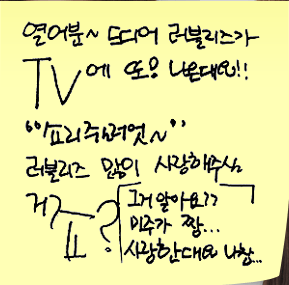 열어분~ 드디어 러블리즈가
TV에 또옹 나온대요!!
러블리즈 많이 사랑해주실
거죠?
그거 알아요??
미주가 짱...
사랑한대요 나참..